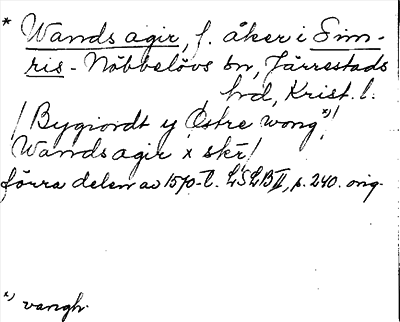 * Wands agir, f. åker i Sim-
ris-Nöbbelövs sn, Järrestads
hrd, Krist. l.
/Bygiordt y Østre wong x)/
Wands agir x skr/
förra delen av 1570-t. LSLB II, s. 240. orig.
x) vangh.